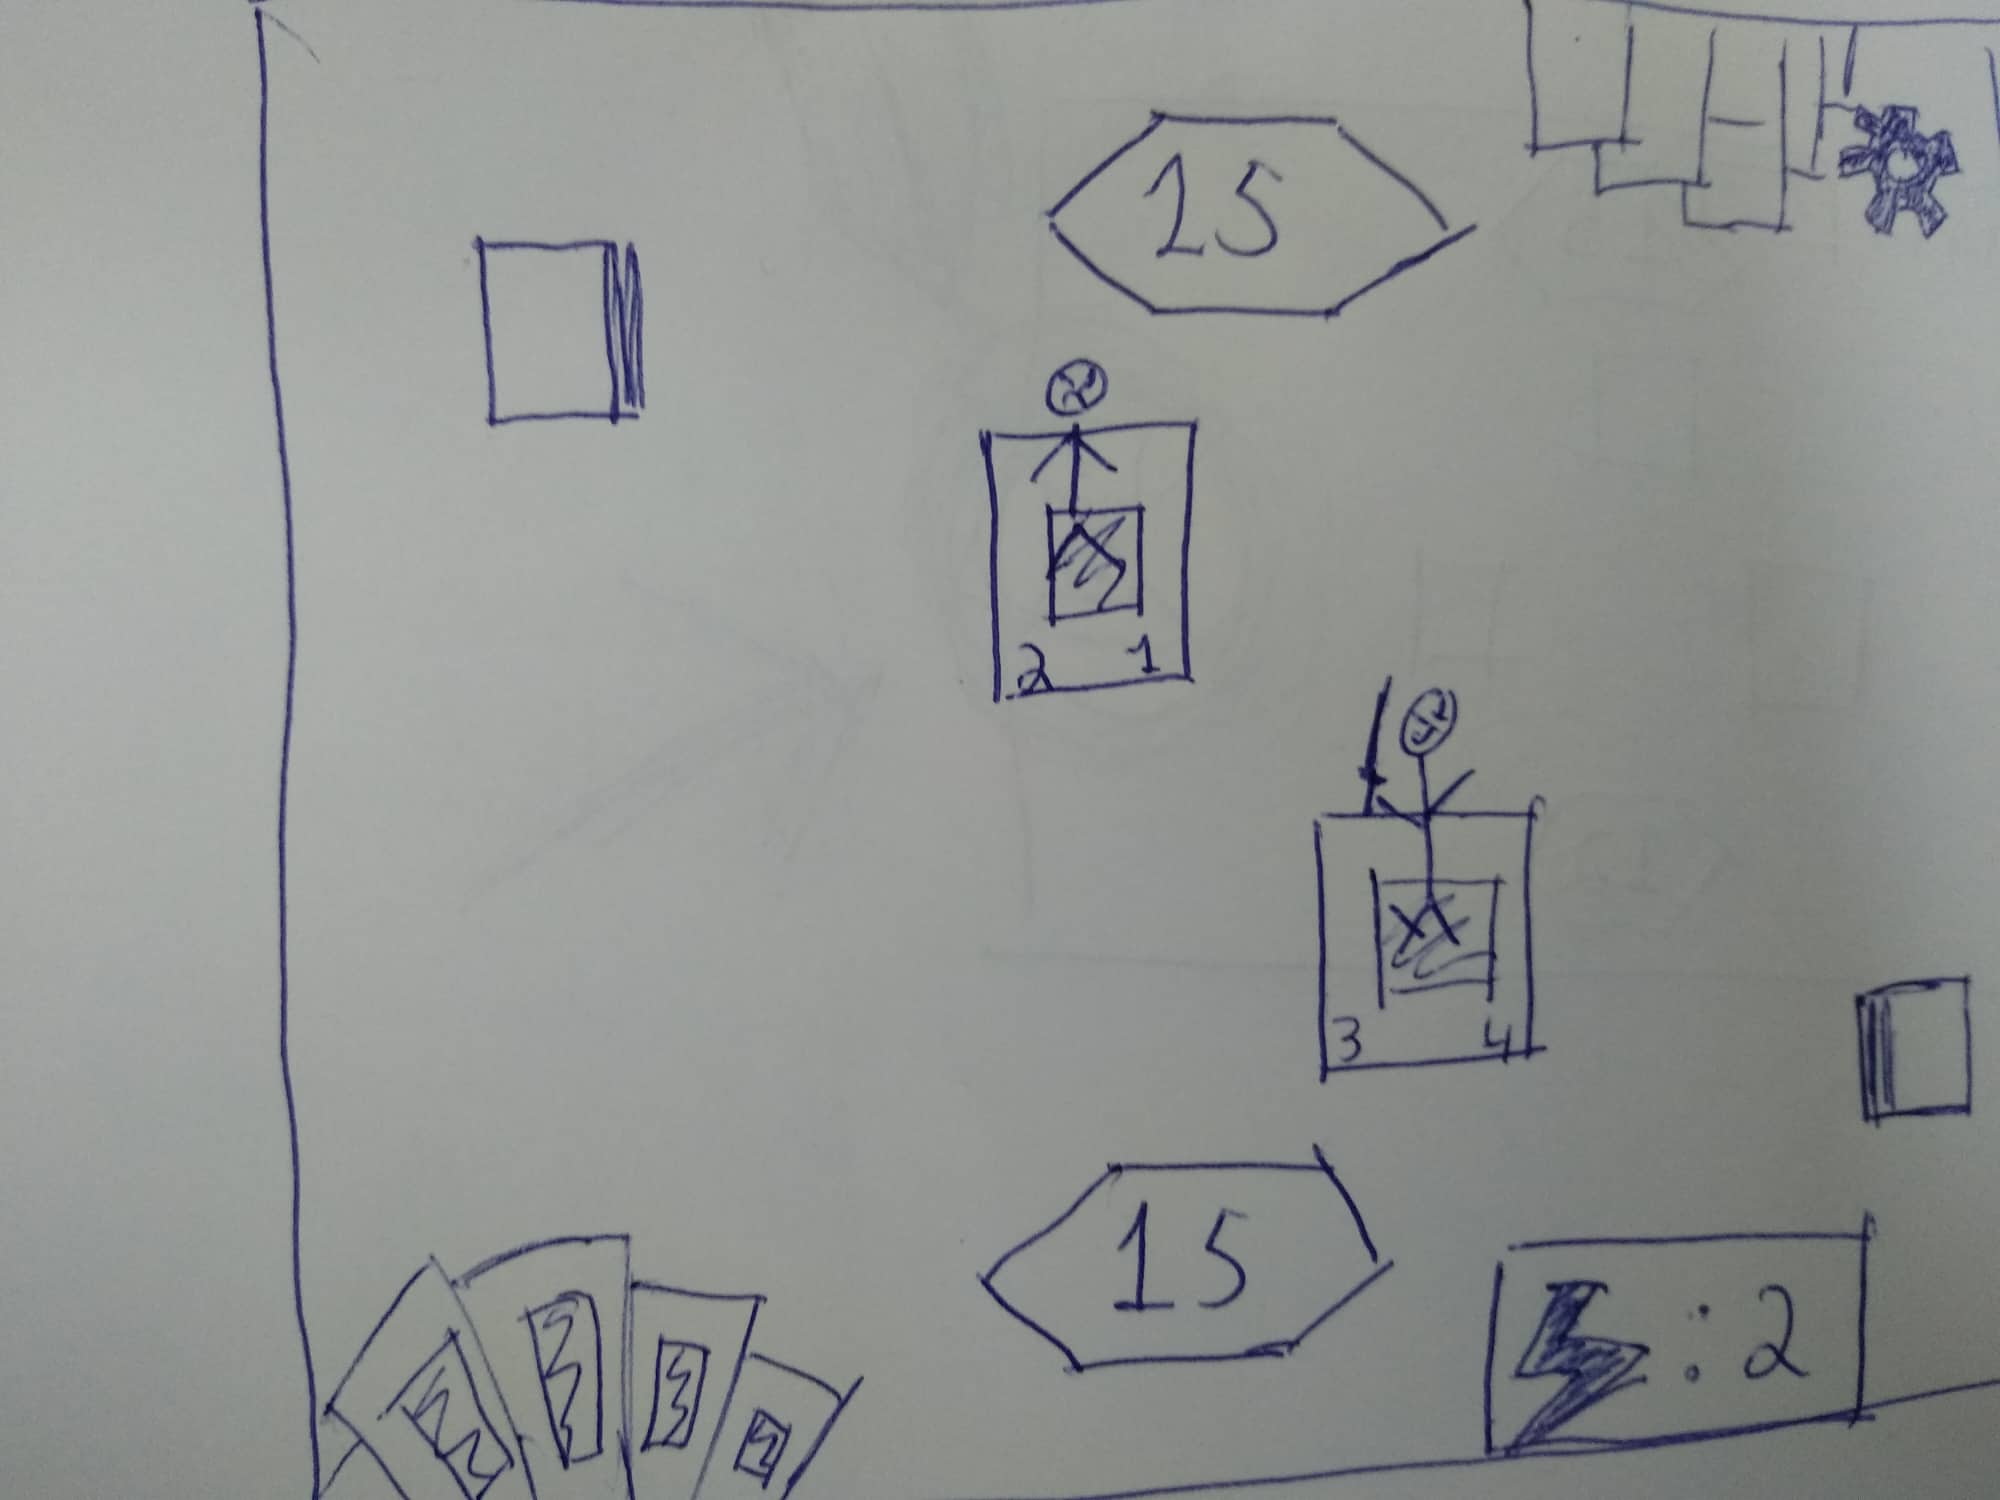 15
2 1
3 4
15
: 2